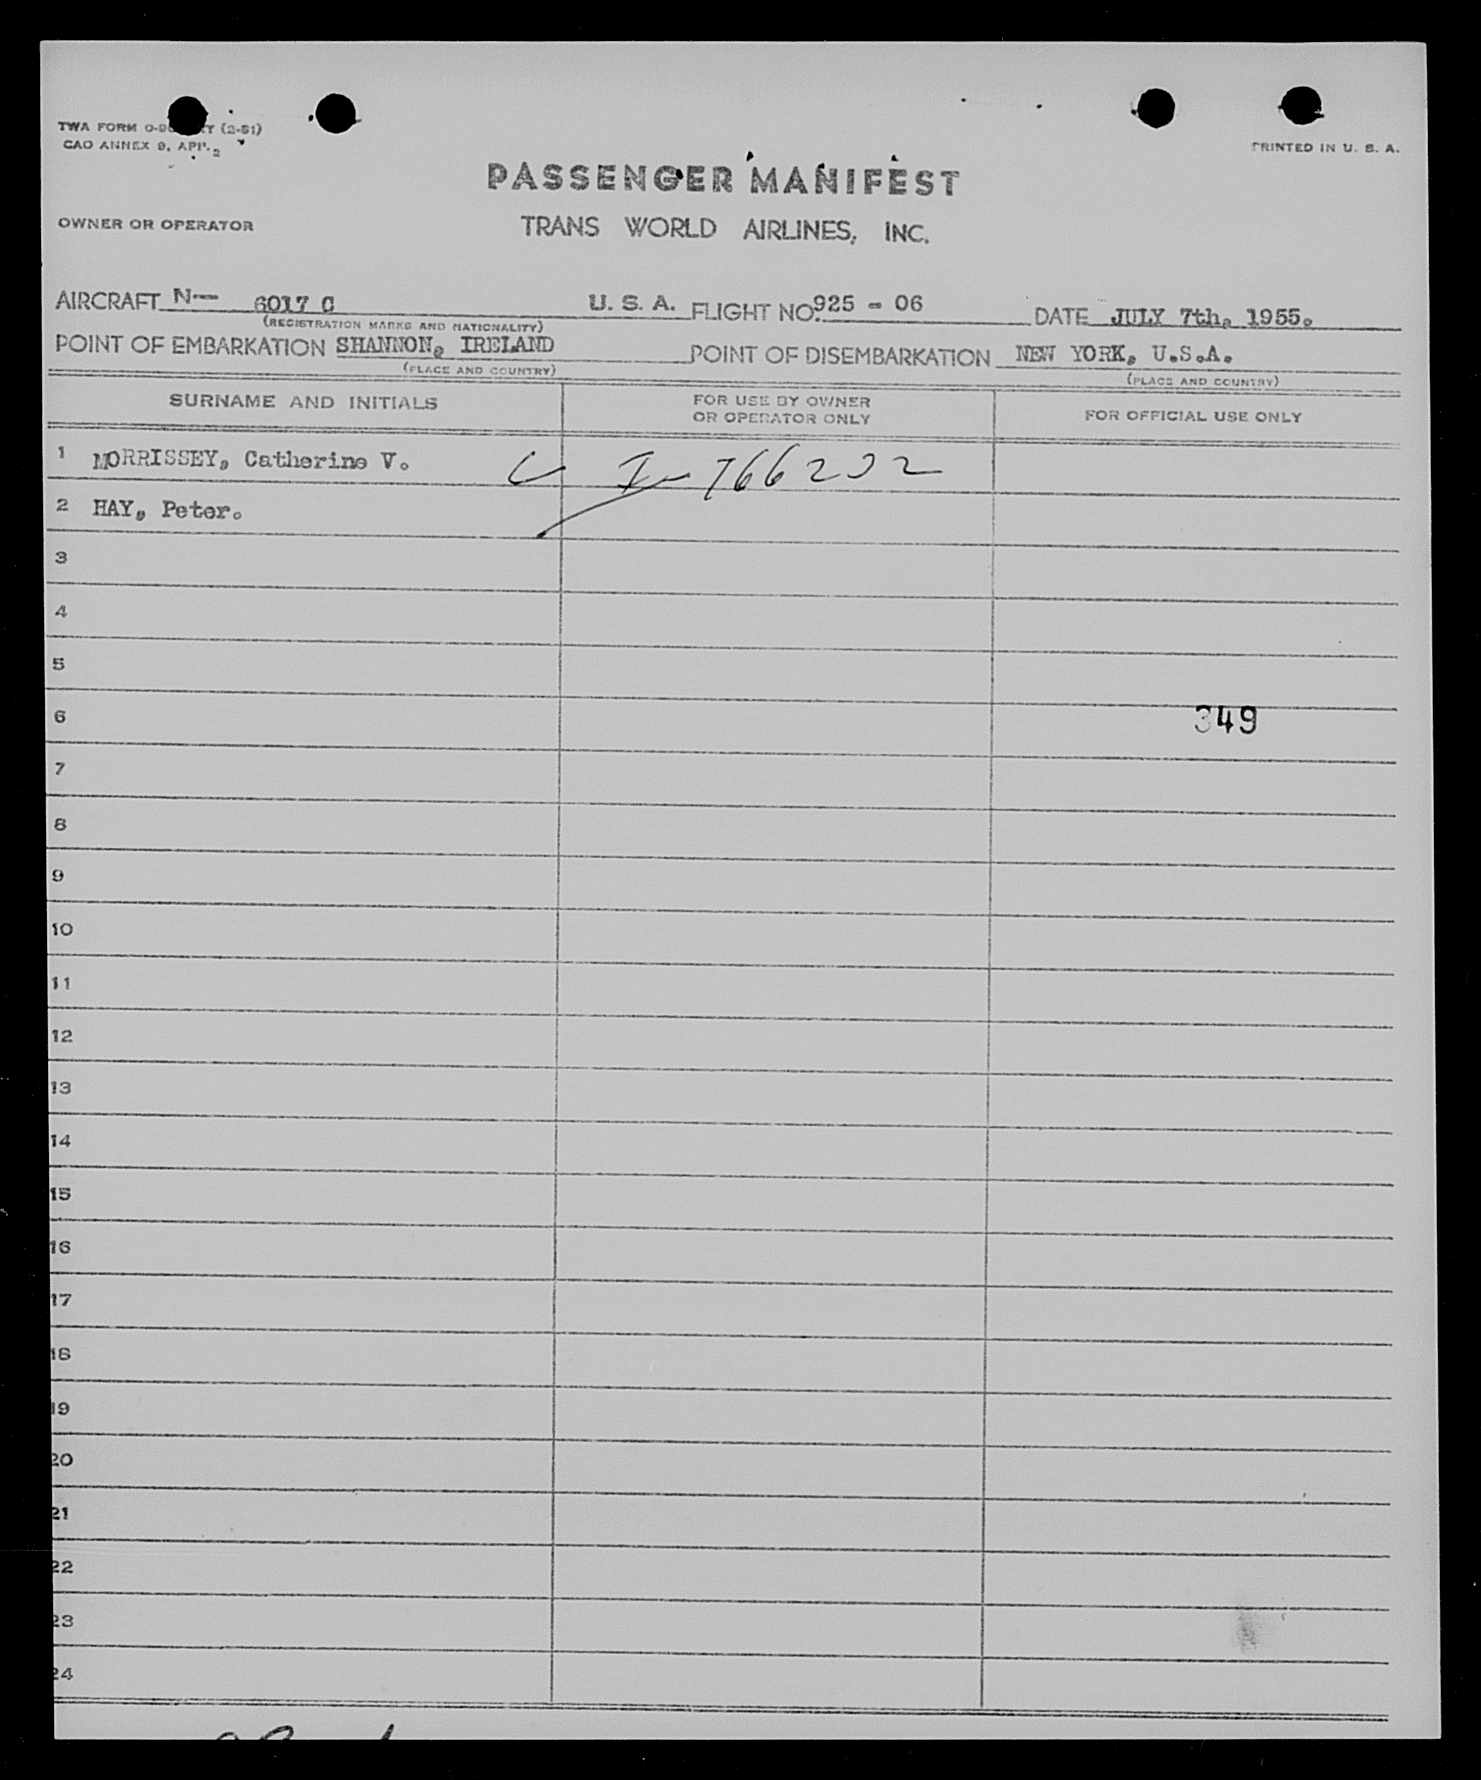 TWA FORM (2-51)
PRINTED IN U. S. A.
PASSENGER MANIFEST
OWNER OR OPERATOR
TRANS WORLD AIRLINES, INC.
AIRCRAFT N— 6017 C U. S. A. FLIGHT NO. 925 - 06 DATE JULY 7th, 1955.
(REGISTRATION MARKS AND NATIONALITY)
POINT OF EMBARKATION SHANNON, IRELAND POINT OF DISEMBARKATION NEW YORK, U.S.A.
(PLACE AND COUNTRY) (PLACE AND COUNTRY)
SURNAME AND INITIALS
FOR USE BY OWNER
OR OPERATOR ONLY
FOR OFFICIAL USE ONLY
1 MORRISSEY, Catherine V.
2 HAY, Peter.
3
4
5
6
349
7
8
9
10
11
12
13
14
15
16
17
18
19
20
21
22
23
24